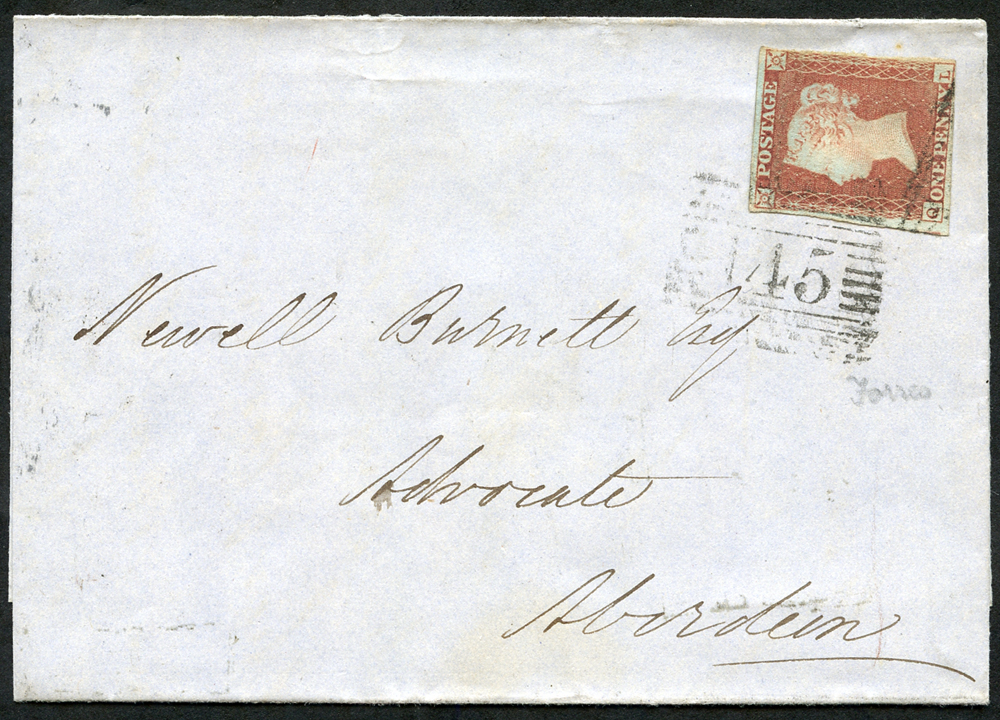 POSTAGE
ONE PENNY
Q L
145
Newell Burnett Esq
Forres
Advocate
Aberdeen